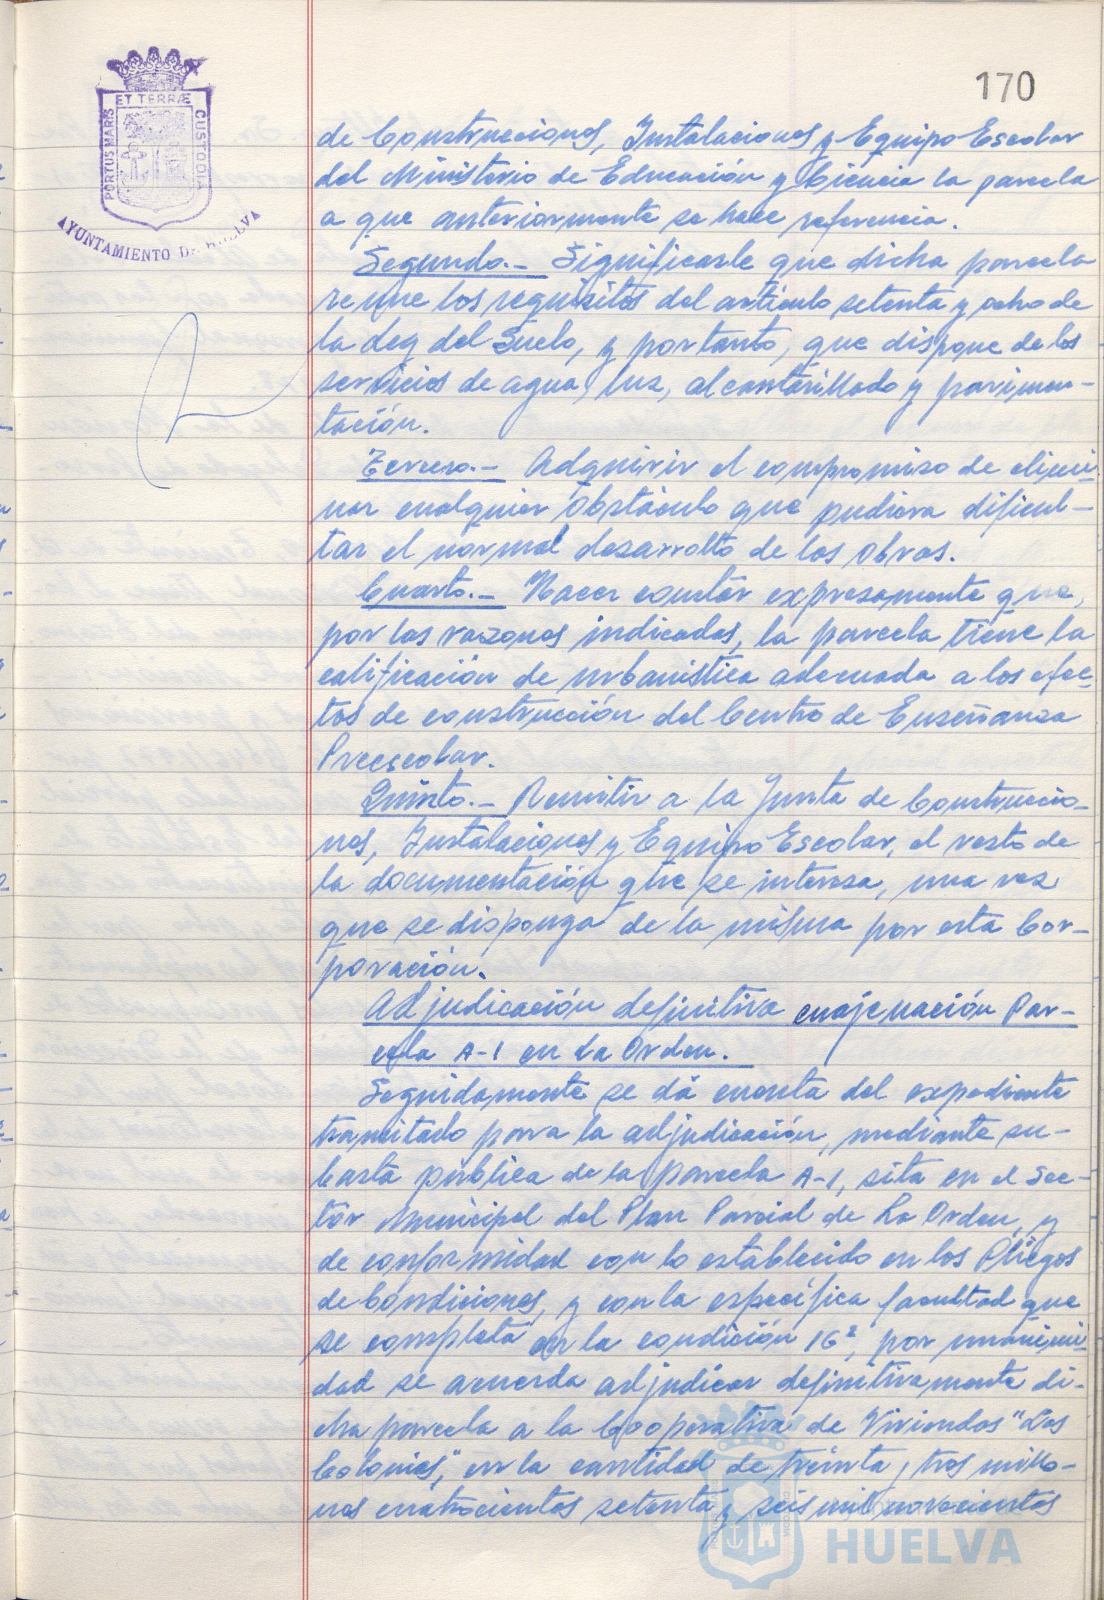 170
PORTUS MARIS ET TERRÆ CUSTODIA
AYUNTAMIENTO DE HUELVA
de Construcciones, Instalaciones y Equipo Escolar
del Ministerio de Educación y Ciencia la parcela
a que anteriormente se hace referencia.
Segundo.- Significarle que dicha parcela
reune los requisitos del artículo setenta y ocho de
la Ley del Suelo, y por tanto, que dispone de los
servicios de agua, luz, alcantarillado y pavimen-
tación.
Tercero.- Adquirir el compromiso de elimi-
nar cualquier obstáculo que pudiera dificul-
tar el normal desarrollo de las obras.
Cuarto.- Hacer constar expresamente que,
por las razones indicadas, la parcela tiene la
calificación de urbanística adecuada a los efec-
tos de construcción del Centro de Enseñanza
Preescolar.
Quinto.- Remitir a la Junta de Construccio-
nes, Instalaciones y Equipo Escolar, el resto de
la documentación que se interesa, una vez
que se disponga de la misma por esta Cor-
poración.
Adjudicación definitiva enajenación Par-
cela A-1 en La Orden.
Seguidamente se dá cuenta del expediente
tramitado para la adjudicación, mediante su-
basta pública de la parcela A-1, sita en el Sec-
tor Municipal del Plan Parcial de La Orden, y
de conformidad con lo establecido en los Pliegos
de Condiciones, y con la específica facultad que
se completa en la condición 16ª, por unanimi-
dad se acuerda adjudicar definitivamente di-
cha parcela a la Cooperativa de Viviendas "Las
Colonias", en la cantidad de treinta y tres millo-
nes cuatrocientos setenta y seis mil novecientos
HUELVA